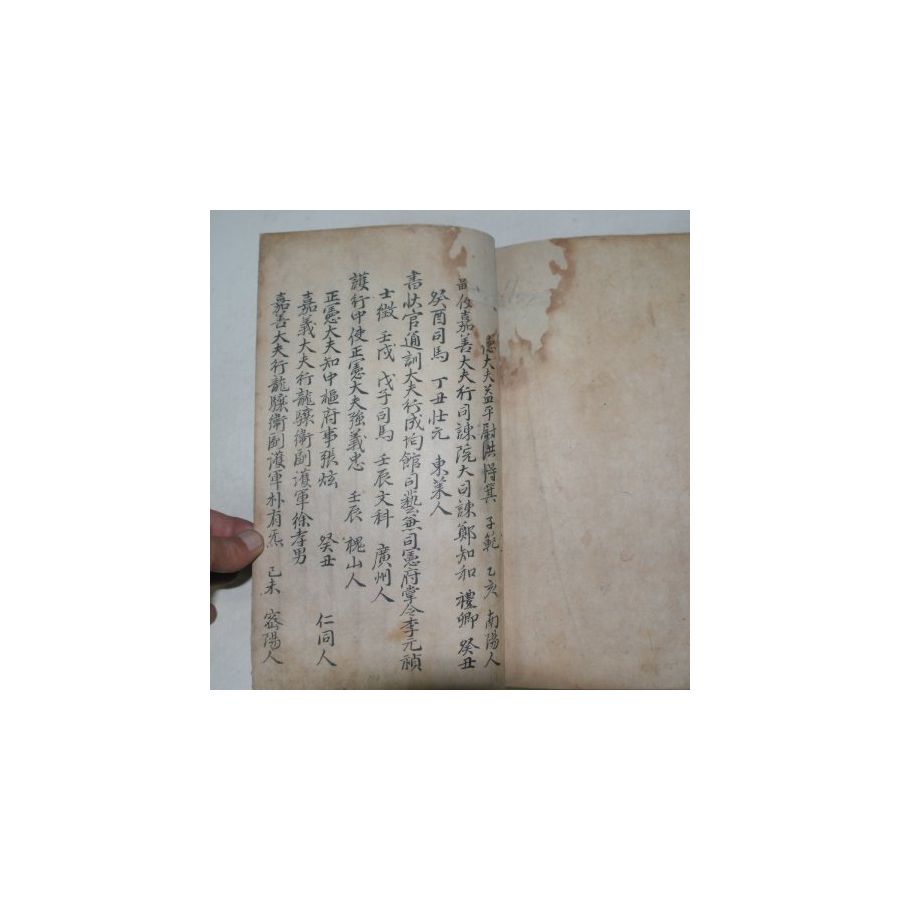 憲大夫益平尉洪得箕 子範 乙亥 南陽人
副使嘉善大夫行司諫院大司諫鄭知和 禮卿 癸丑
癸酉司馬 丁丑壯元 東萊人
書狀官通訓大夫行成均館司藝兼司憲府掌令李元禎
士徵 壬戌 戊子司馬 壬辰文科 廣州人
護行中使正憲大夫強義忠 壬辰 槐山人
正憲大夫知中樞府事張炫 癸丑 仁同人
嘉義大夫行龍驤衛副護軍徐孝男
嘉善大夫行龍驤衛副護軍朴有炁 己未 密陽人